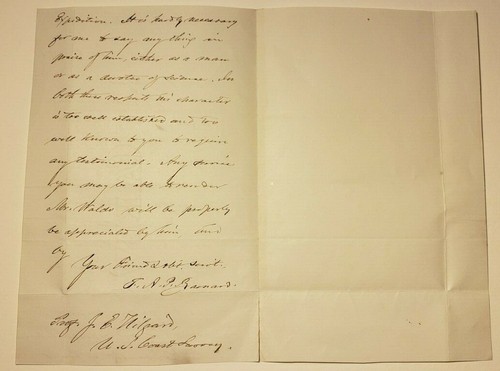 Expedition. It is hardly necessary
for me to say any thing in
praise of him either as a man
or as a devotee of science. In
both these respects his character
is too well established and too
well known to you to require
any testimonial. Any service
you may be able to render
Mr. Waldo will be properly
be appreciated by him and
by
Your friend & obt servt.
F. A. P. Barnard.
Prof. J. E. Hilgard,
U. S. Coast Survey.